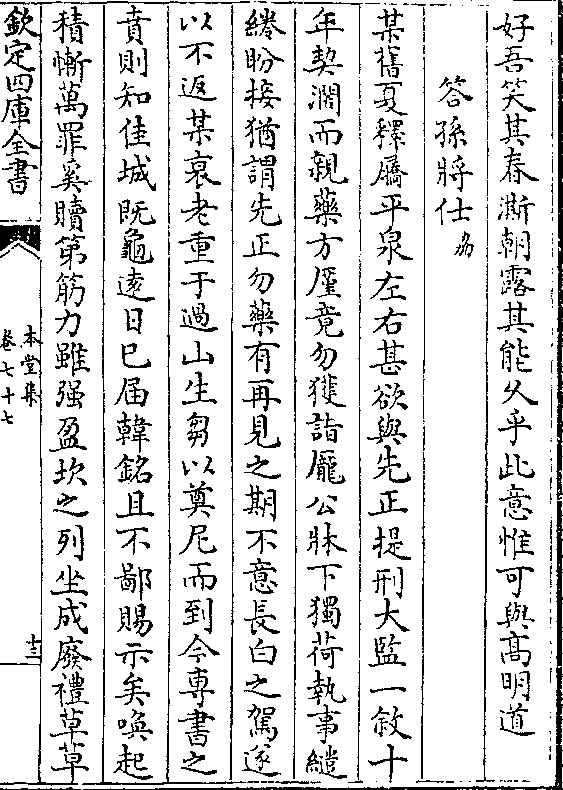 好吾笑其春澌朝露其能久乎此意惟可與髙明道
答孫將仕
某舊夏釋屩平泉左右甚欲與先正提刑大監一敘十
年契濶而親藥方厪竟勿獲詣龎公牀下獨荷執事繾
綣盼接猶謂先正勿藥有再見之期不意長白之駕遂
以不返某衰老重于過山生芻以奠尼而到今専書之
賁則知佳城既龜逺日已届韓銘且不鄙賜示矣喚起
積慚萬罪奚贖第筋力雖强盈坎之列坐成廢禮草草
欽定四庫全書
本堂集
卷七十七
十三